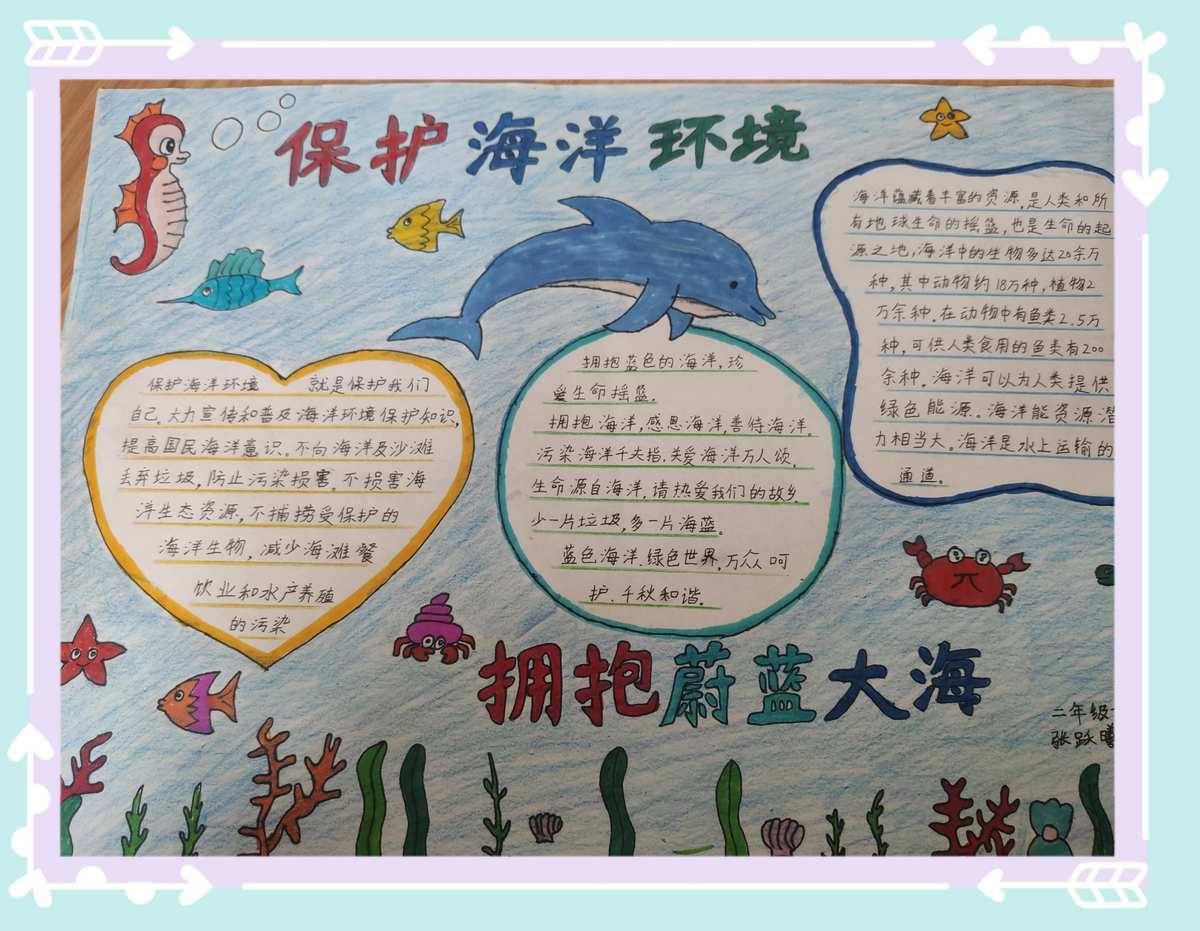 保护海洋环境
海洋蕴藏着丰富的资源,是人类和所
有地球生命的摇篮,也是生命的起
源之地,海洋中的生物多达20余万
种,其中动物约18万种,植物2
万余种.在动物中有鱼类2.5万
种,可供人类食用的鱼类有200
余种.海洋可以为人类提供
绿色能源。海洋能资源潜
力相当大。海洋是水上运输的
通道。
保护海洋环境 就是保护我们
自己。大力宣传和普及海洋环境保护知识,
提高国民海洋意识。不向海洋及沙滩
丢弃垃圾,防止污染损害。不损害海
洋生态资源,不捕捞受保护的
海洋生物,减少海滩餐
饮业和水产养殖
的污染
拥抱蓝色的海洋,珍
爱生命摇篮.
拥抱海洋,感恩海洋,善待海洋.
污染海洋千夫指.关爱海洋万人颂.
生命源自海洋,请热爱我们的故乡.
少一片垃圾,多一片海蓝。
蓝色海洋.绿色世界,万众呵
护.千秋和谐.
拥抱蔚蓝大海
二年级
张跃曦